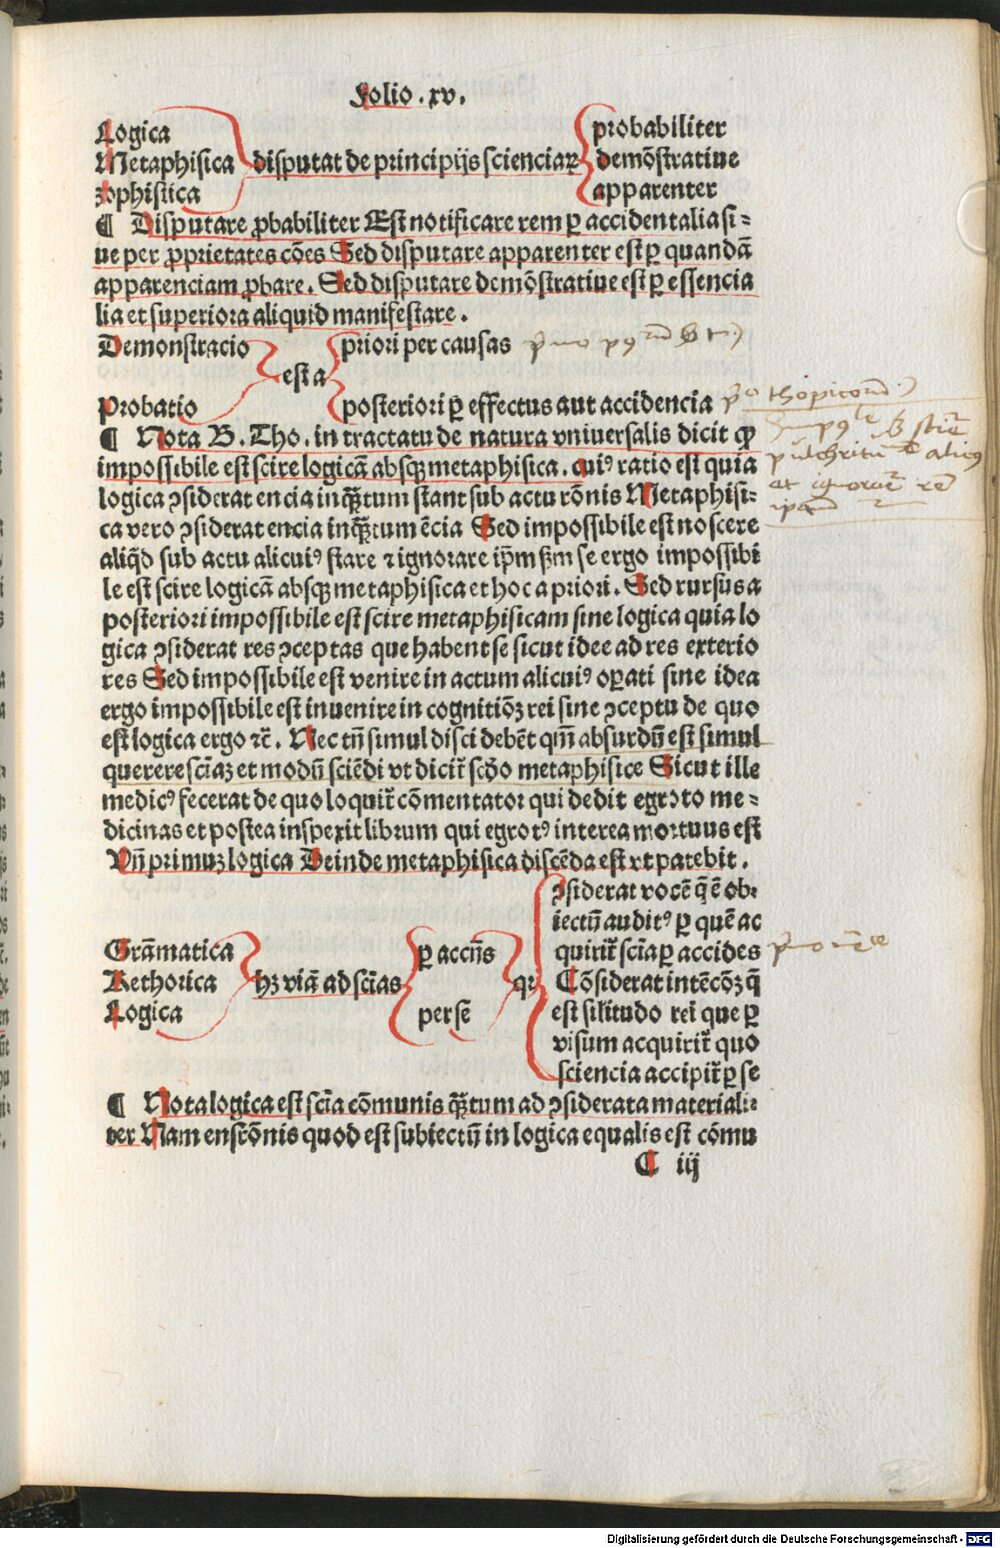 Folio .xv.
Logica
Metaphisica
zophistica
disputat de principijs scienciaꝝ
probabiliter
demōstratiue
apparenter
¶ Disputare ꝓbabiliter Est notificare rem ꝑ accidentalia si⸗
ue per ꝓprietates cōes Sed disputare apparenter est ꝑ quandā
apparenciam ꝓbare. Sed disputare demōstratiue est ꝑ essencia
lia et superiora aliquid manifestare.
Demonstracio
Probatio
est a
priori per causas
posteriori ꝑ effectus aut accidencia
¶ Nota B. Tho. in tractatu de natura vniuersalis dicit ꝙ
impossibile est scire logicā absqꝫ metaphisica. cuiꝰ ratio est quia
logica ↄsiderat encia inqꝫtum stant sub actu rōnis Metaphisi⸗
ca vero ↄsiderat encia inqꝫtum ēcia Sed impossibile est noscere
aliqd̄ sub actu alicuiꝰ stare ⁊ ignorare ip̄m ẜm se ergo impossibi
le est scire logicā absqꝫ metaphisica et hoc a priori. Sed rursus a
posteriori impossibile est scire metaphisicam sine logica quia lo
gica ↄsiderat res ↄceptas que habent se sicut idee ad res exterio
res Sed impossibile est venire in actum alicuiꝰ oꝑati sine idea
ergo impossibile est inuenire in cognitiōꝫ rei sine ↄceptu de quo
est logica ergo ⁊c̄. Nec tn̄ simul disci debēt qm̄ absurdū est simul
querere sciaꝫ et modū sciēdi vt dicit̄ scd̄o metaphisice Sicut ille
medicꝰ fecerat de quo loquit̄ cōmentator qui dedit egroto me⸗
dicinas et postea inspexit librum qui egrotꝰ interea mortuus est
Vn̄ primuꝫ logica Deinde metaphisica discēda est vt patebit.
Grāmatica
Rethorica
Logica
hꝫ viā ad sciās
ꝑ accn̄s
per se
qꝛ
ↄsiderat vocē q̄ ē ob⸗
iectū auditꝰ ꝑ quē ac
quirit̄ scia ꝑ accides
Cōsiderat intēcōꝫ q̄
est silitudo rei que ꝑ
visum acquirit̄ quo
sciencia accipit̄ ꝑ se
¶ Nota logica est scia cōmunis qꝫtum ad ↄsiderata materiali⸗
ter Nam ens rōnis quod est subiectū in logica equalis est cōmu
C iij
Digitalisierung gefördert durch die Deutsche Forschungsgemeinschaft - DFG